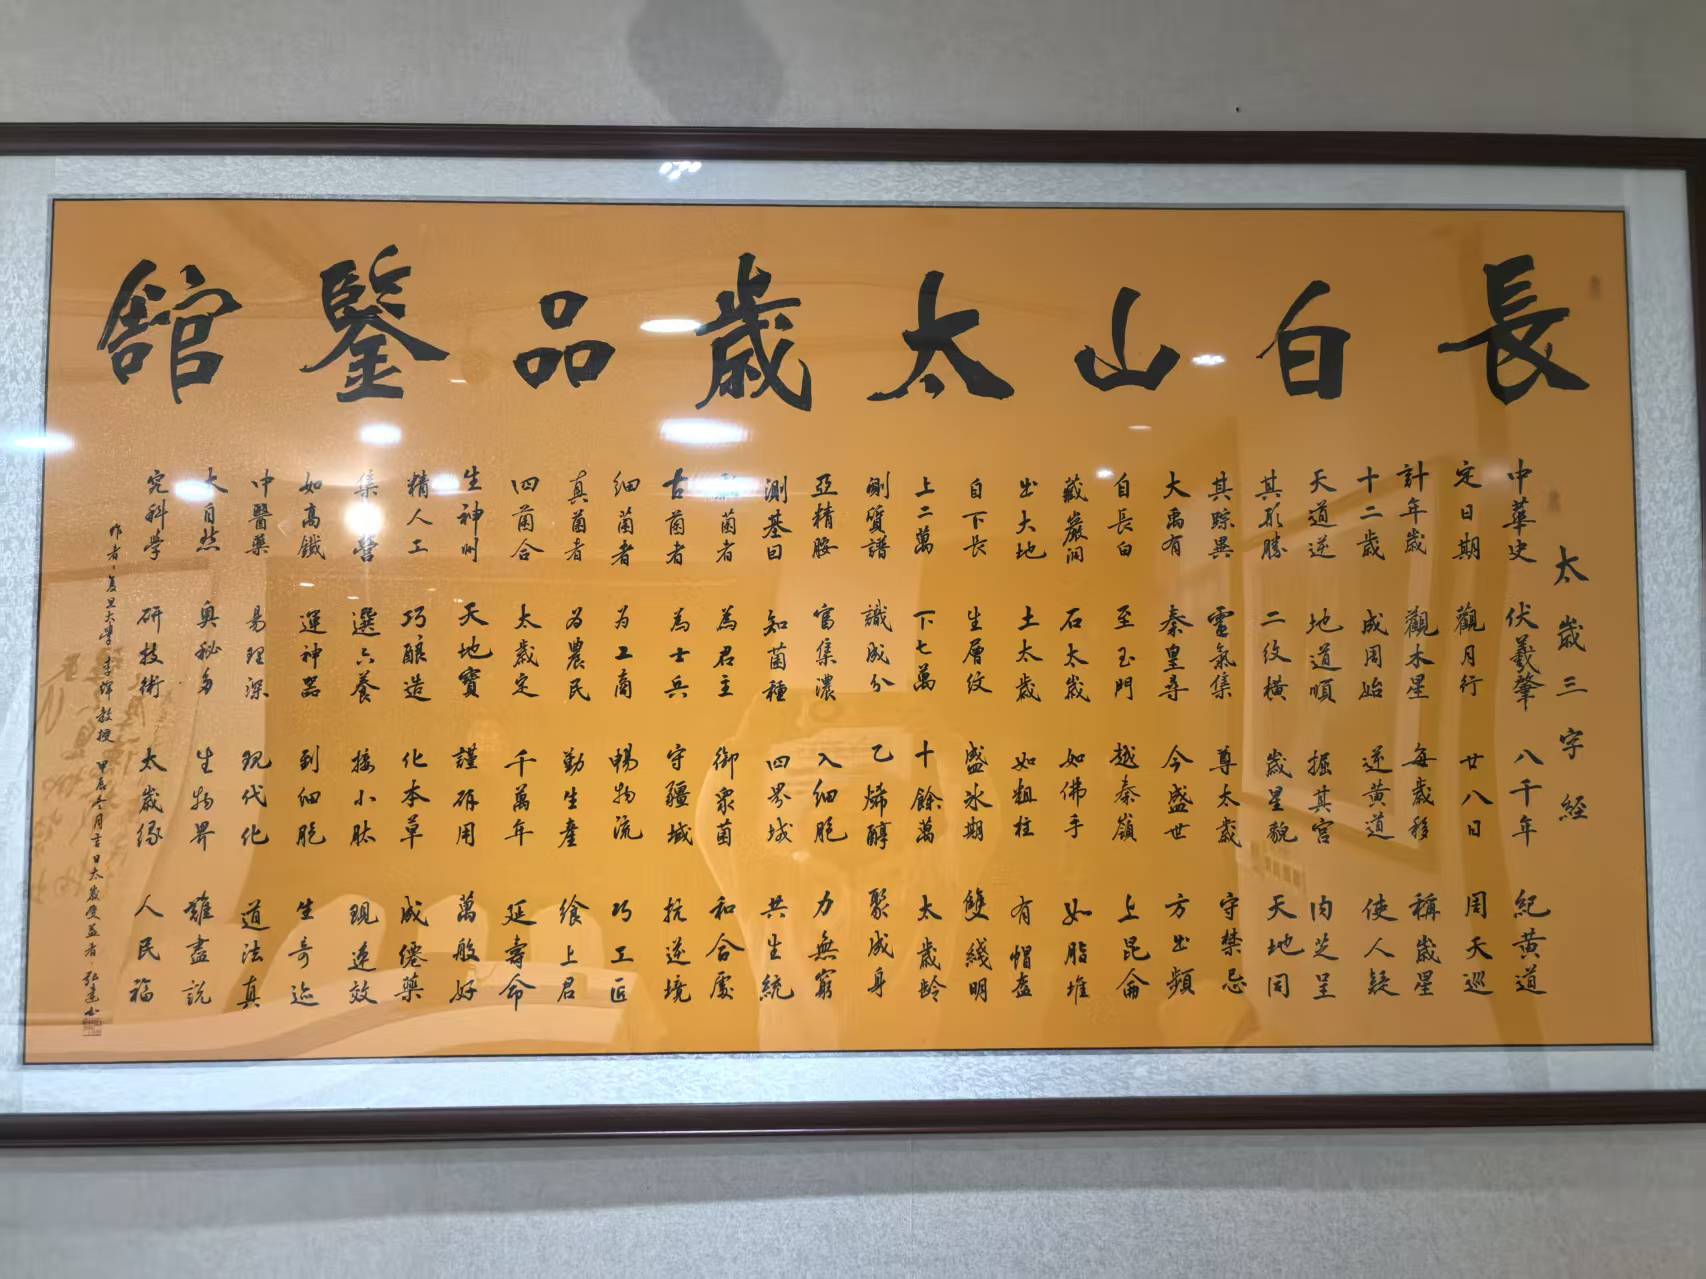 長白山太歲品鑒館
太歲三字經
中華史 伏羲肇 八千年 紀黃道
定日期 觀月行 廿八日 周天巡
計年歲 觀木星 每歲移 稱歲星
十二歲 成周始 逆黃道 使人疑
天道逆 地道順 掘其宮 肉芝呈
其形勝 二紋橫 歲星貌 天地同
其踪異 靈氣集 尊太歲 守禁忌
大禹有 秦皇尋 今盛世 方出頻
自長白 至玉門 越秦嶺 上昆侖
藏巖洞 石太歲 如佛手 如脂堆
出大地 土太歲 如粗柱 有帽蓋
自下長 生層紋 盛冰期 雙綫明
上二萬 下七萬 十餘萬 太歲齡
測質譜 識成分 乙烯醇 聚成身
亞精胺 富集濃 入細胞 力無窮
測基因 知菌種 四界域 共生統
菌者 為君主 御眾菌 和合處
古菌者 為士兵 守疆域 抗逆境
细菌者 为工商 暢物流 巧工匠
真菌者 为農民 勤生產 飨上君
四菌合 太歲定 千萬年 延壽命
生神州 天地寶 謹硏用 萬般好
精人工 巧釀造 化本草 成僊藥
集營 選六養 接小肽 現速效
如高鐵 運神器 到细胞 生奇迹
中醫藥 易理深 现代化 道法真
大自然 奧秘多 生物界 難盡說
究科學 研技術 太歲缘 人民福
作者:复旦大學 李輝教授 甲辰冬月吉日太歲受益者:弘 书